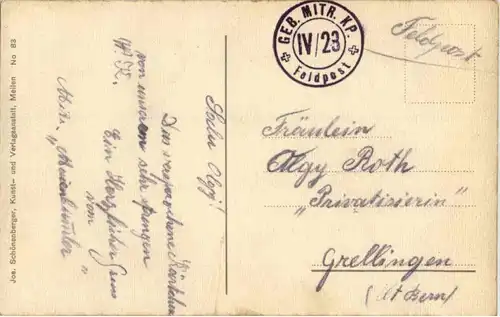 Jos. Schönenberger, Kunst- und Verlagsanstalt, Meilen No 83
GEB. MITR. KP.
IV/23
Feldpost
Feldpost
Algy!
Das versprochene Kärtchen
von unserem sehr
Ein Herzlicher Gruss
von
Fräulein
Algy Roth
„Privatisierin"
Grellingen
(Kt Bern)